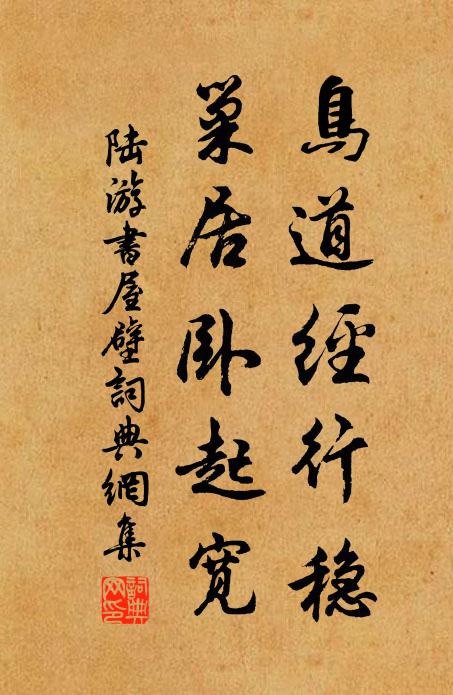 鳥道經行穩
巢居臥起寬
陸游書屋壁詞典網集
詞典
網印